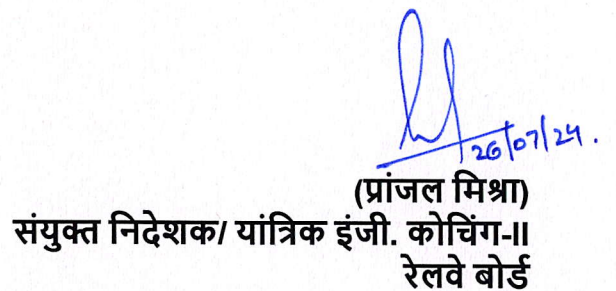 26/07/24.
(प्रांजल मिश्रा)
संयुक्त निदेशक/ यांत्रिक इंजी. कोचिंग-II
रेलवे बोर्ड